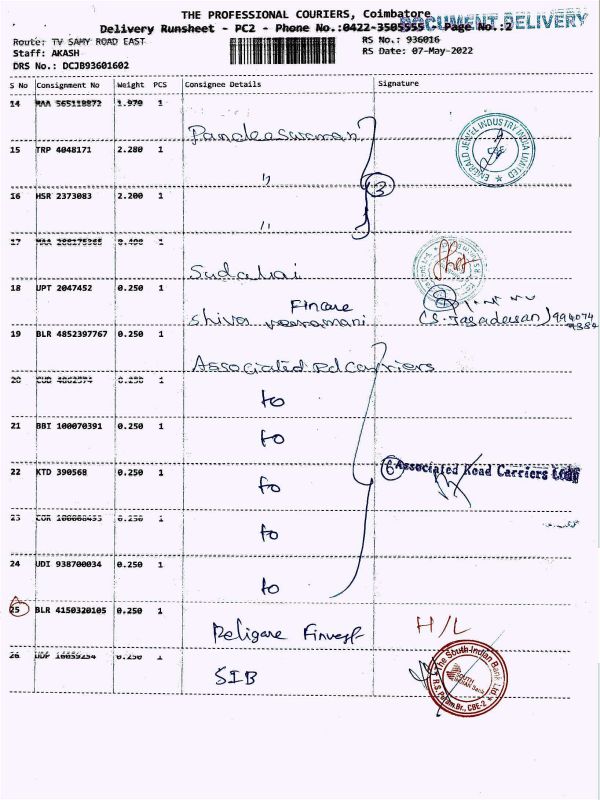 THE PROFESSIONAL COURIERS, Coimbatore
DOCUMENT DELIVERY
Delivery Runsheet - PC2 - Phone No.:0422-3505555 - Page No.:2
Route: TV SAMY ROAD EAST
RS No.: 936016
Staff: AKASH
RS Date: 07-May-2022
DRS No.: DCJB93601602
S No Consignment No Weight PCS Consignee Details Signature
14 MAA 565118872 1.970 1
Pandeeswaran
EMERALD JEWEL INDUSTRY INDIA LIMITED
CBE
15 TRP 4048171 2.280 1
"
3
16 HSR 2373083 2.200 1
"
17 1
Sudahai
18 UPT 2047452 0.250 1
Fincare
Shiva
19 BLR 4852397767 0.250 1
Associated Rd Carriers
20 0.250 1
to
21 BBI 100070391 0.250 1
to
22 KTD 390568 0.250 1
to
6 Associated Road Carriers
23 0.250 1
to
24 UDI 938700034 0.250 1
to
25 BLR 4150320105 0.250 1
Religare Finvest
H/L
26 0.250 1
SIB
The South Indian Bank Ltd
SOUTH INDIAN Bank
R.S. Puram Br., CBE-2